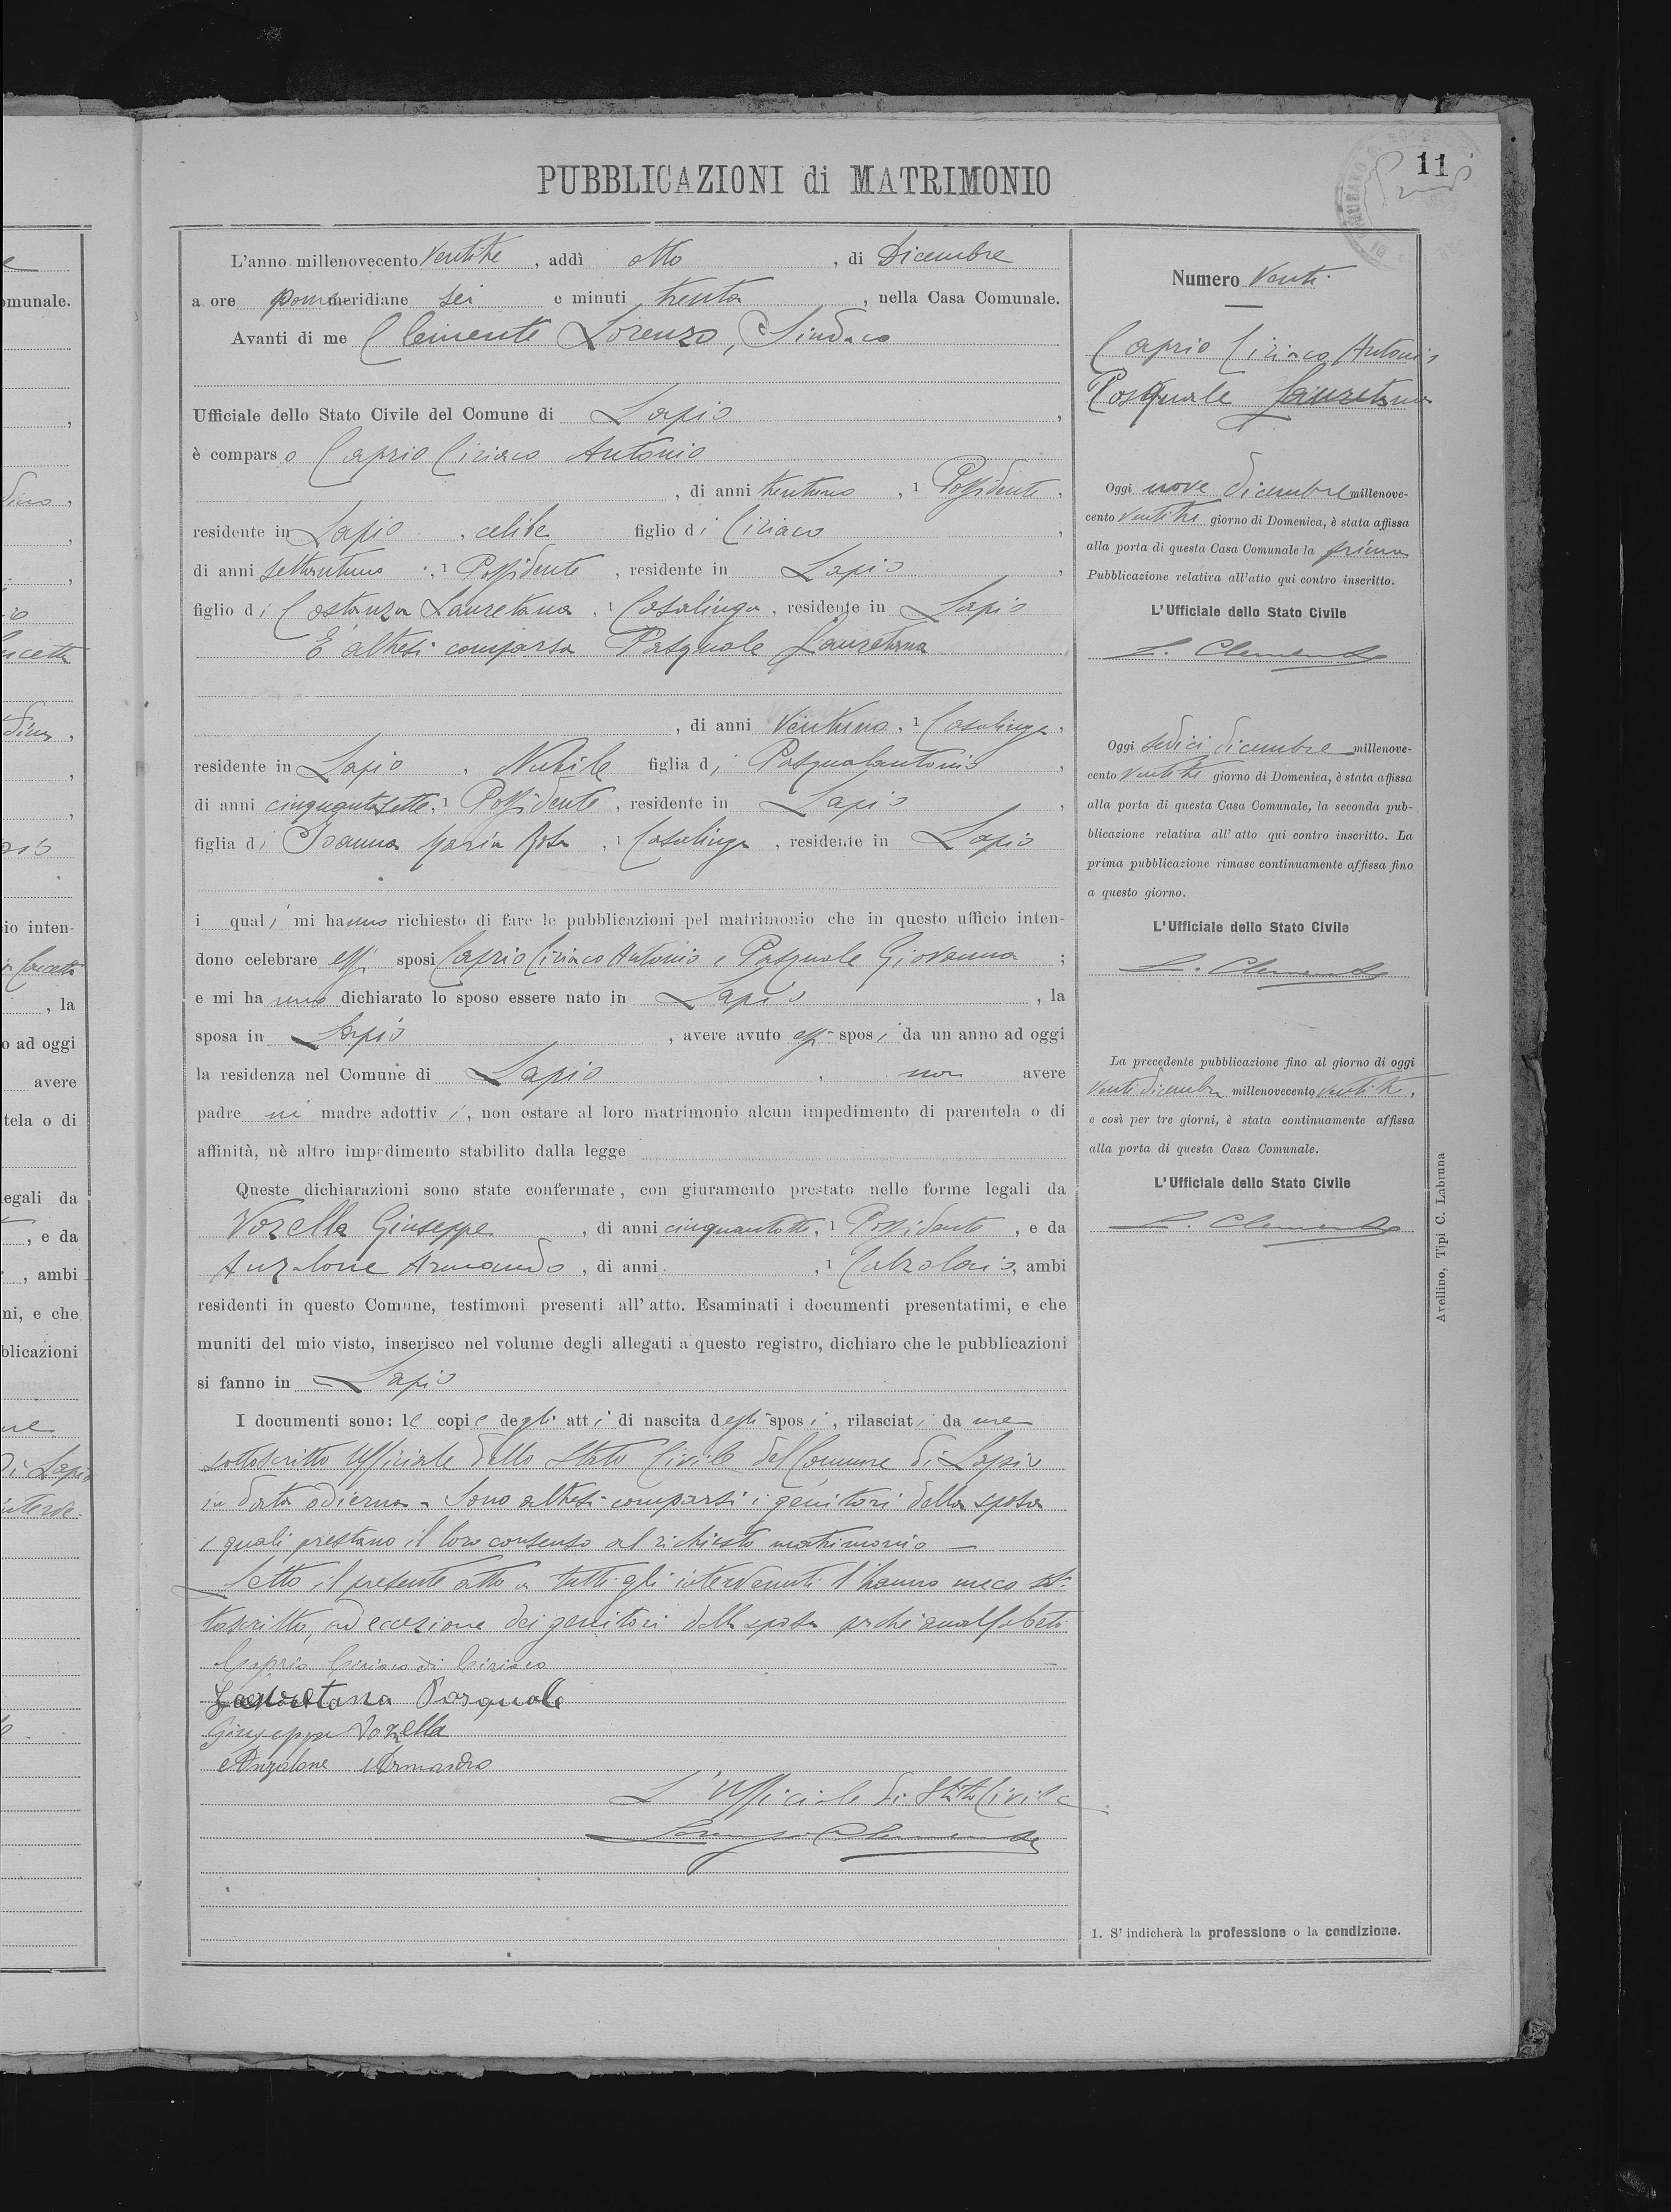 PUBBLICAZIONI di MATRIMONIO
11
L'anno millenovecento Ventitre, addì otto, di Dicembre
a ore pommeridiane sei e minuti trenta, nella Casa Comunale.
Avanti di me Clemente Lorenzo, Sindaco
Ufficiale dello Stato Civile del Comune di Lapio,
è comparso Caprio Ciriaco Antonio
, di anni trentuno, 1 Possidente,
residente in Lapio, celibe figlio di Ciriaco,
di anni settantuno, 1 Possidente, residente in Lapio,
figlio di Costanza Lauretana, 1 Casalinga, residente in Lapio
E' altresì comparsa Pasquale Lauretana
, di anni Ventuno, 1 Casalinga,
residente in Lapio, Nubile figlia di Pasqualantonio,
di anni cinquantasette, 1 Possidente, residente in Lapio,
figlia di Ioanna Maria Rosa, 1 Casalinga, residente in Lapio
i quali mi hanno richiesto di fare le pubblicazioni pel matrimonio che in questo ufficio inten-
dono celebrare essi sposi Caprio Ciriaco Antonio e Pasquale Giovanna;
e mi hanno dichiarato lo sposo essere nato in Lapio, la
sposa in Lapio, avere avuto essi sposi da un anno ad oggi
la residenza nel Comune di Lapio, non avere
padre nè madre adottivi, non ostare al loro matrimonio alcun impedimento di parentela o di
affinità, nè altro impedimento stabilito dalla legge
Queste dichiarazioni sono state confermate, con giuramento prestato nelle forme legali da
Vozella Giuseppe, di anni cinquantotto, 1 Possidente, e da
Anzalone Armando, di anni , 1 Calzolaio, ambi
residenti in questo Comune, testimoni presenti all'atto. Esaminati i documenti presentatimi, e che
muniti del mio visto, inserisco nel volume degli allegati a questo registro, dichiaro che le pubblicazioni
si fanno in Lapio
I documenti sono: le copie degli atti di nascita degli sposi, rilasciati da me
sottoscritto Ufficiale dello Stato Civile del Comune di Lapio
in data odierna - Sono altresì comparsi i genitori della sposa
i quali prestano il loro consenso al richiesto matrimonio -
Letto il presente atto a tutti gli intervenuti l'hanno meco sot-
toscritto, ad eccezione dei genitori della sposa perchè analfabeti
Caprio Ciriaco di Ciriaco
Lauretana Pasquale
Giuseppe Vozella
Anzalone Armando
L'Ufficiale di Stato Civile
Lorenzo Clemente
Numero Venti
Caprio Ciriaco Antonio
Pasquale Lauretana
Oggi nove dicembre millenove-
cento ventitre giorno di Domenica, è stata affissa
alla porta di questa Casa Comunale la prima
Pubblicazione relativa all'atto qui contro inscritto.
L'Ufficiale dello Stato Civile
L. Clemente
Oggi sedici dicembre millenove-
cento Ventitre giorno di Domenica, è stata affissa
alla porta di questa Casa Comunale, la seconda pub-
blicazione relativa all'atto qui contro inscritto. La
prima pubblicazione rimase continuamente affissa fino
a questo giorno.
L'Ufficiale dello Stato Civile
L. Clemente
La precedente pubblicazione fino al giorno di oggi
Venti dicembre millenovecento ventitre,
e così per tre giorni, è stata continuamente affissa
alla porta di questa Casa Comunale.
L'Ufficiale dello Stato Civile
L. Clemente
1. S'indicherà la professione o la condizione.
Avellino, Tipi C. Labruna